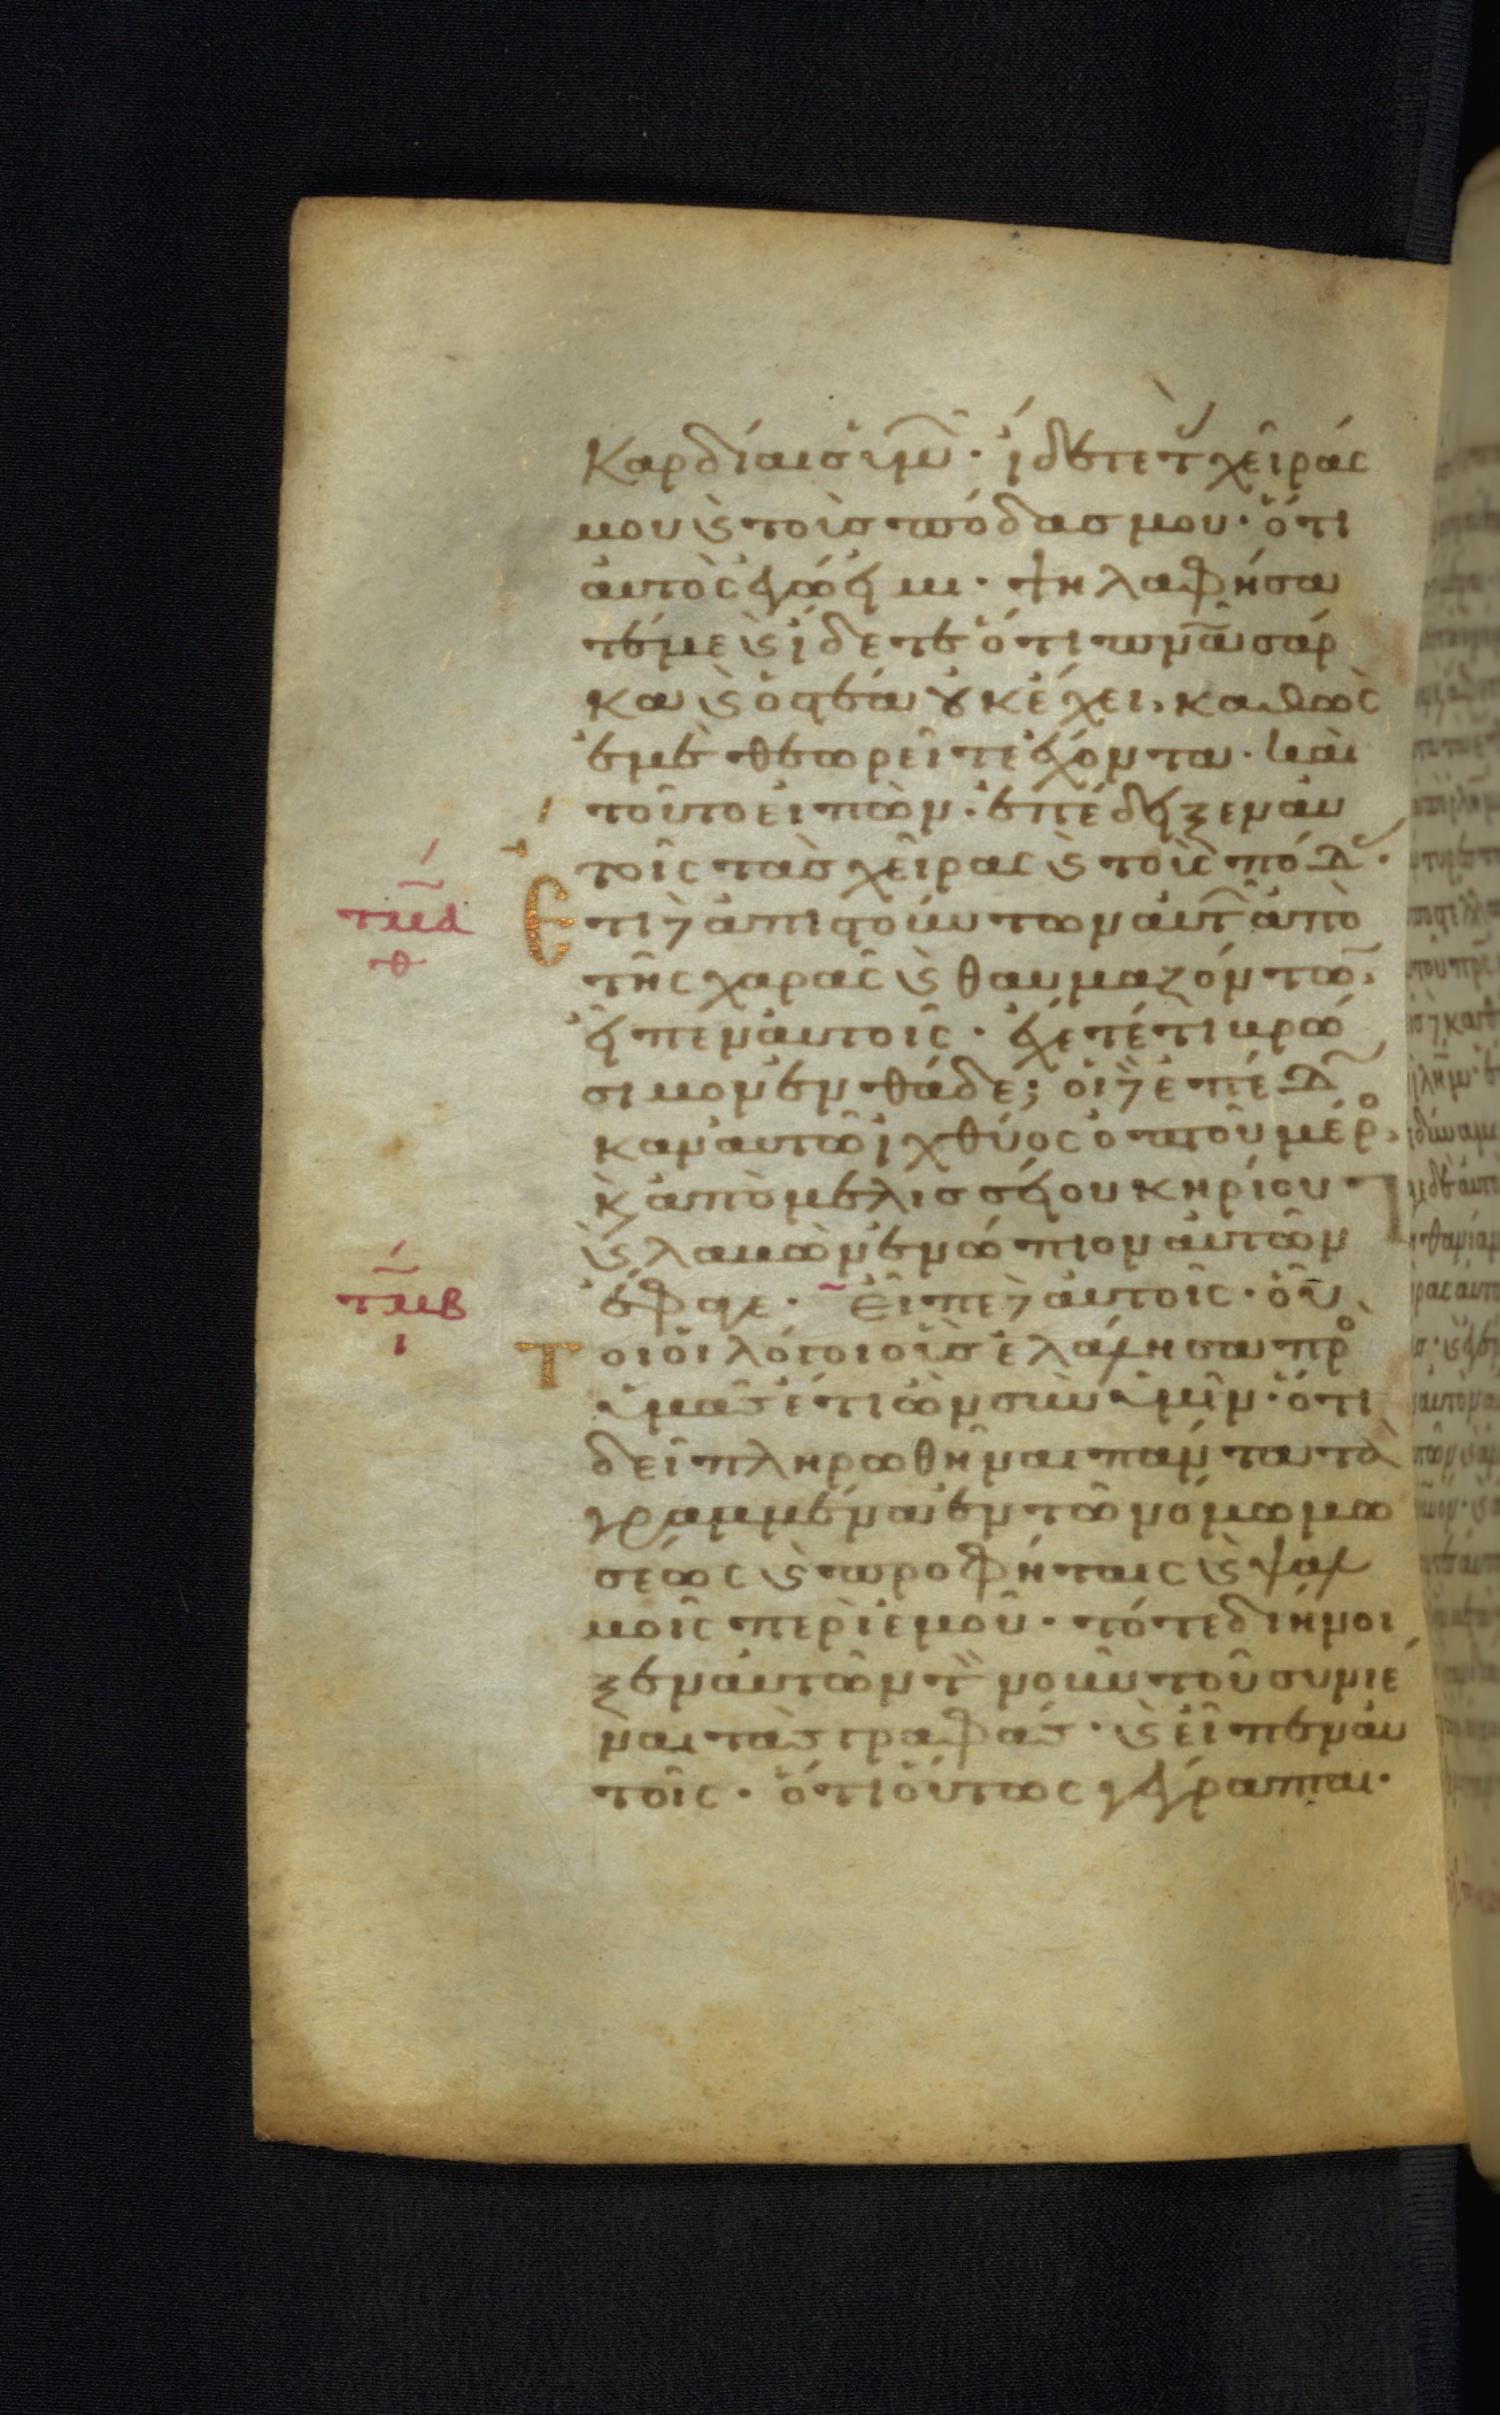 καρδίαις ὑμῶ· ἴδετε τ χεῖράς
μου ϗ τοὺς πόδας μου· ὅτι
αὐτὸς ἐγώ εἰμι· ψηλαφήσα
τέ με ϗ ἴδετε ὅτι πνᾶ σάρ
κα ϗ ὀστέα οὐκ ἔχει, καθὼς
ἐμὲ θεωρεῖτε ἔχοντα· καὶ
τοῦτο εἰπὼν· ἐπέδειξεν αὐ
τοῖς τὰς χεῖρας ϗ τοὺς πόδ·
τμα θ
Ετι δ ἀπιστούντων αὐτ ἀπὸ
τῆς χαρᾶς ϗ θαυμαζόντω,
εἶπεν αὐτοῖς· ἔχετέ τι βρώ
σιμον ἐνθάδε; οἱ δ ἐπέδ
καν αὐτῶ ἰχθύος ὀπτοῦ μέρο,
κ ἀπὸ μελισσείου κηρίου·
ϗ λαβὼν ἐνώπιον αὐτῶν
τμβ ι
ἔφαγε· εἶπε δ αὐτοῖς· οὗ
Τοι οἱ λόγοι οὓς ἐλάλησα προ
ὑμᾶς ἔτι ὢν σὺν ὑμῖν· ὅτι
δεῖ πληρωθῆναι πάντα τὰ
γραμμένα ἐν τῶ νόμω μω
σέως ϗ προφήταις ϗ ψαλ
μοῖς περὶ ἐμοῦ· τότε διήνοι
ξεν αὐτῶν τ νοῦν τοῦ συνιέ
ναι τὰς γραφάς· ϗ εἶπεν αὐ
τοῖς· ὅτι οὕτως γέγραπται·